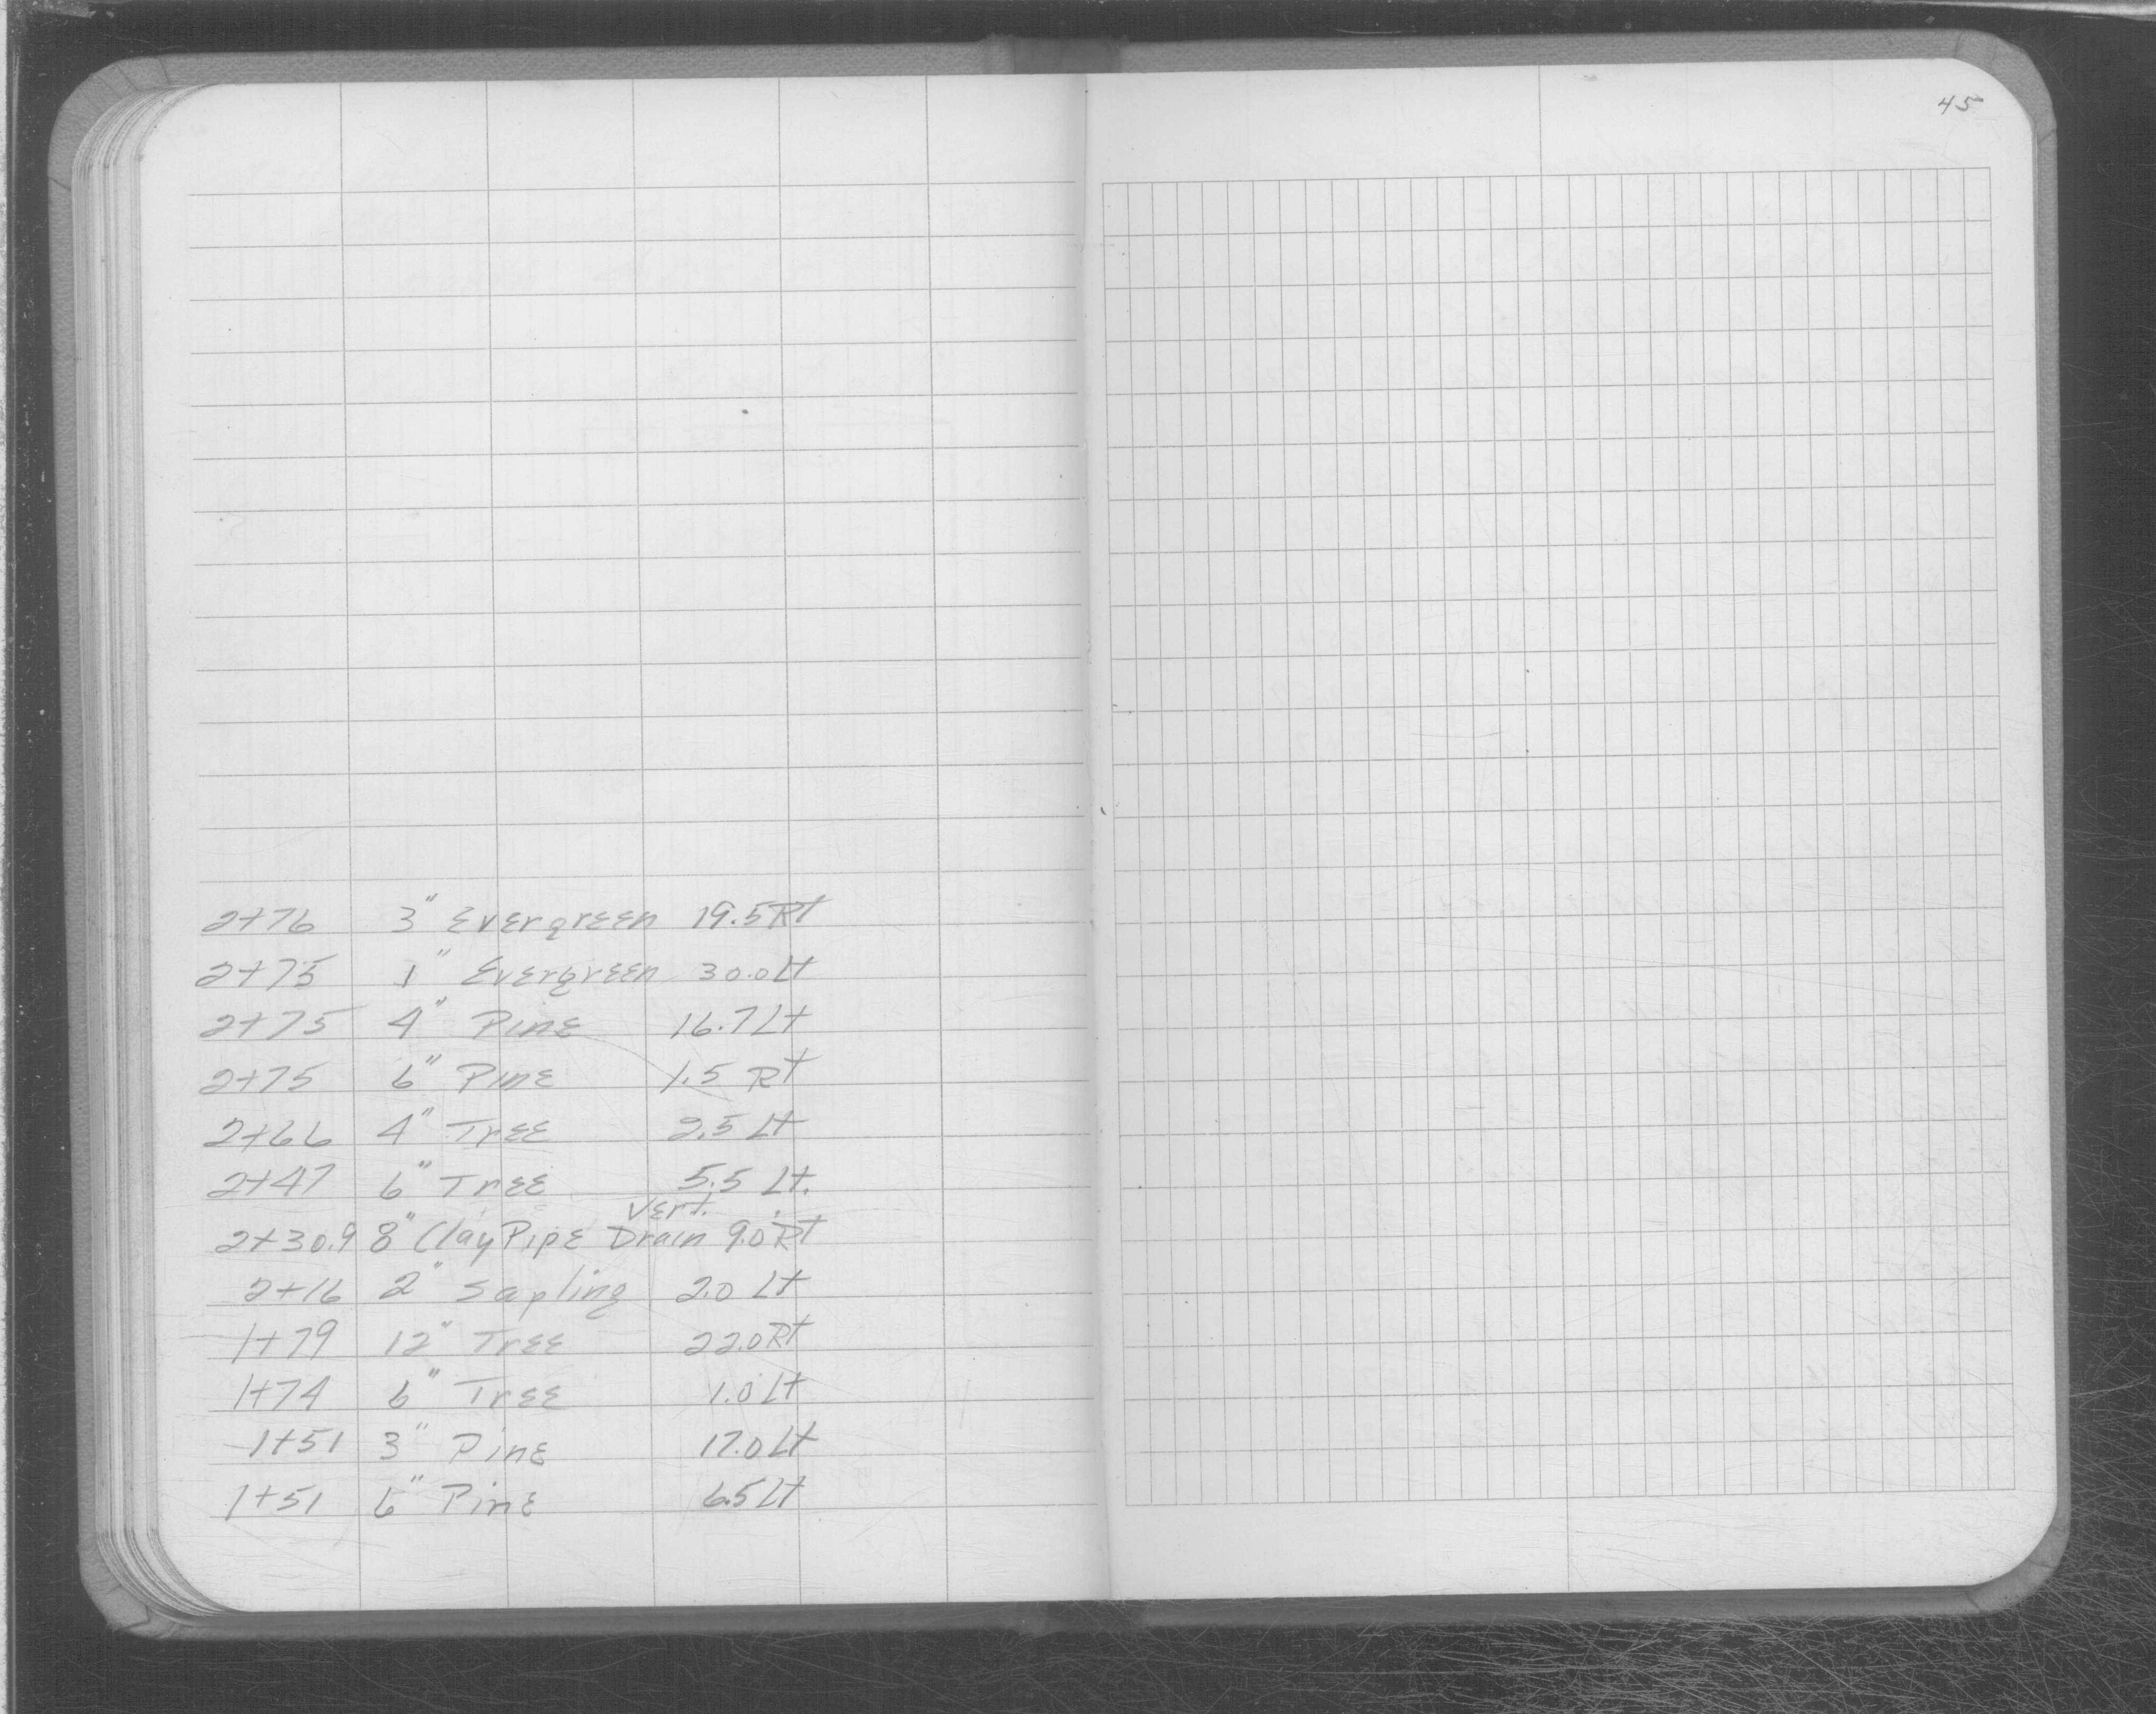 45
2+76 3" Evergreen 19.5 Rt
2+75 1" Evergreen 30.0 Lt
2+75 4" Pine 16.7 Lt
2+75 6" Pine 1.5 Rt
2+66 4" Tree 2.5 Lt
2+47 6" Tree 5.5 Lt.
Vert.
2+30.9 8" Clay Pipe Drain 9.0 Rt
2+16 2" Sapling 2.0 Lt
1+79 12" Tree 22.0 Rt
1+74 6" Tree 1.0 Lt
1+51 3" Pine 17.0 Lt
1+51 6" Pine 6.5 Lt